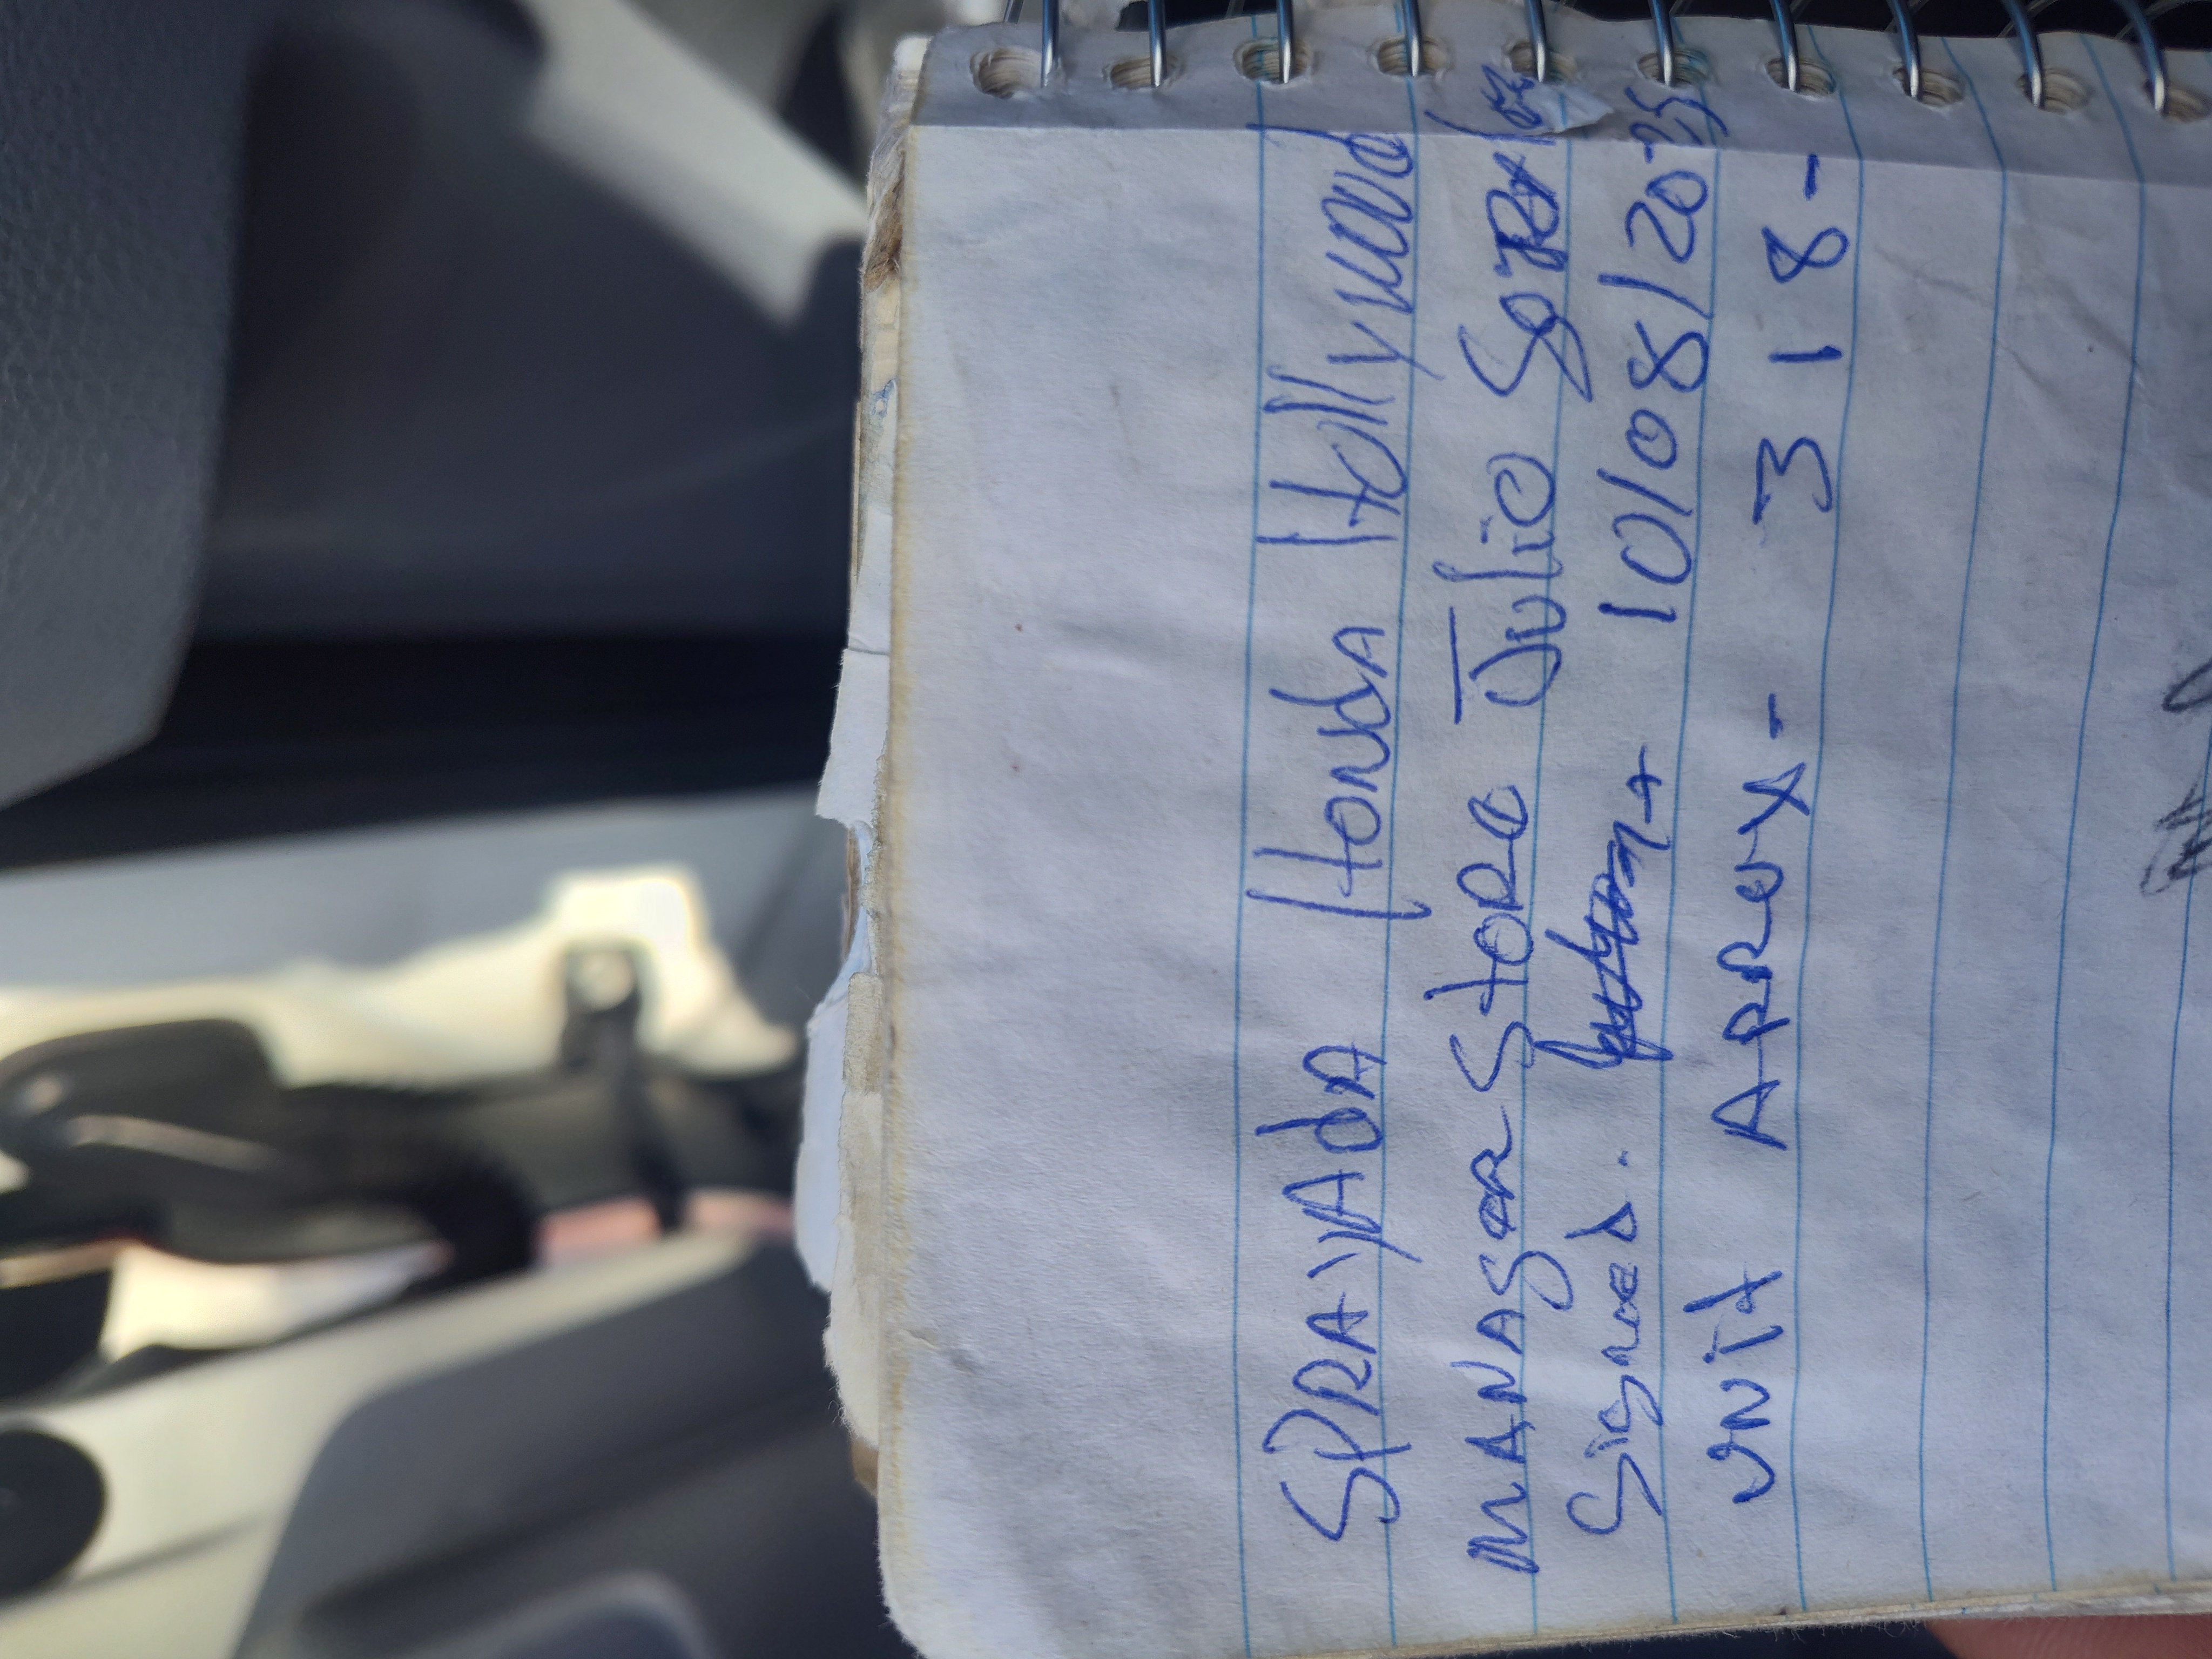 SPRAYAdA Honda Hollywood
MANAGER Store Julio
Signed. 10/08/2025
Unit Aprox- 318-